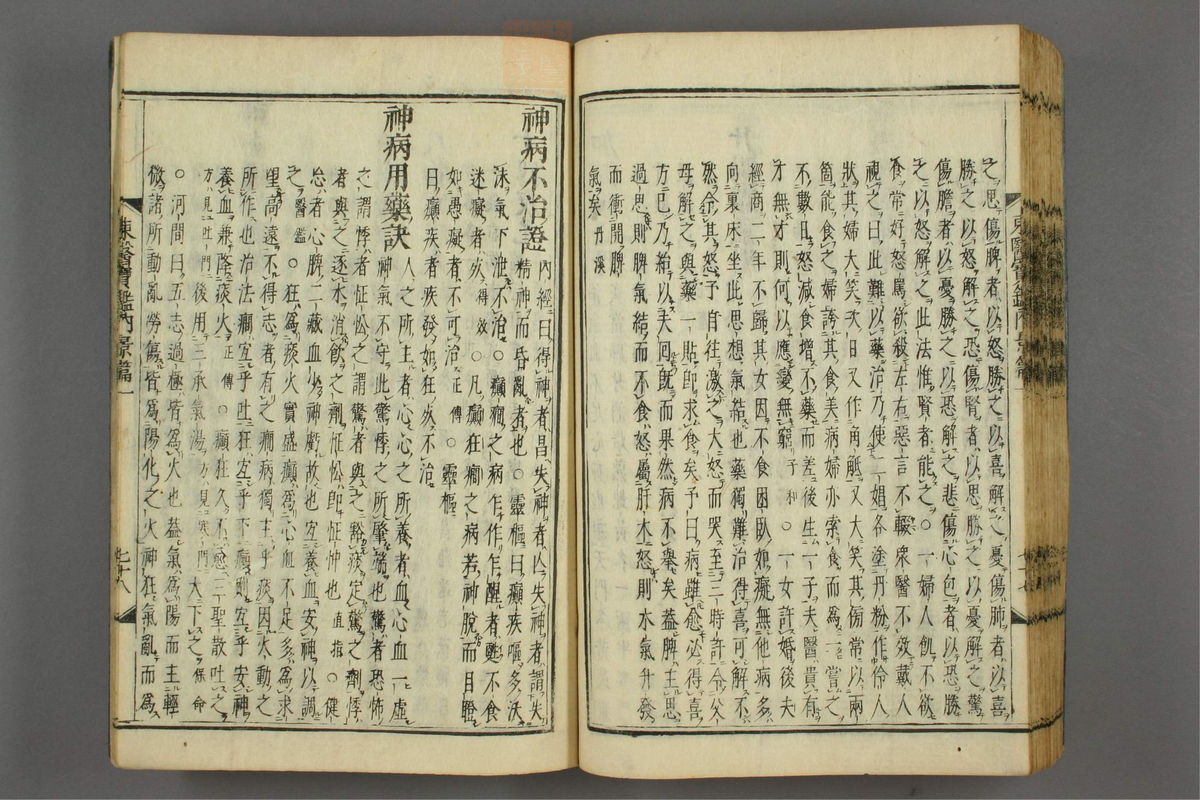 之思傷脾者以怒勝之以喜解之憂傷肺者以喜
勝之以怒解之恐傷腎者以思勝之以憂解之驚
傷膽者以憂勝之以恐解之悲傷心包者以恐勝
之以怒解之此法惟賢者能之○一婦人飢不欲
食常好怒罵欲殺左右惡言不輟衆醫不效戴人
視之曰此難以藥治乃使二娼各塗丹粉作伶人
狀其婦大笑次日又作角觝又大笑其傍常以兩
箇能食之婦誇其食美病婦亦索食而爲一嘗之
不數日怒減食增不藥而差後生一子夫醫貴有
才無才則何以應變無窮子和○一女許婚後夫
經商二年不歸其女因不食困臥如癡無他病多
向裏床坐此思想氣結也藥獨難治得喜可解不
然令其怒予自往激之大怒而哭至三時許令父
母解之與藥一貼即求食矣予曰病雖愈必得喜
方已乃紿以夫回旣而果然病不擧矣盖脾主思
過思則脾氣結而不食怒屬肝木怒則木氣升發
而衝開脾
氣矣丹溪
神病不治證
內經曰得神者昌失神者亡失神者謂失
精神而昏亂者也○靈樞曰癲疾嘔多沃
沫氣下泄不治○癲癎之病乍作乍醒者甦不食
迷癡者死得效○凡癲狂癎之病若神脫而目瞪
如愚癡者不可治正傳○靈樞
曰癲疾者疾發如狂死不治
神病用藥訣
人之所主者心心之所養者血心血一虛
神氣不守此驚悸之所肇端也驚者恐怖
之謂悸者怔忪之謂驚者與之豁痰定驚之劑悸
者與之逐水消飮之劑怔忪即怔忡也直指○健
忘者心脾二藏血少神虧故也宜養血安神以調
之醫鑑○狂爲痰火實盛癲爲心血不足多爲求
望高遠不得志者有之癎病獨主乎痰因火動之
所作也治法癎宜乎吐狂宜乎下癲則宜乎安神
養血兼降痰火正傳○癲狂久不愈三聖散吐之
方見吐門後用三承氣湯方見寒門大下之保命
○河間曰五志過極皆爲火也盖氣爲陽而主輕
微諸所動亂勞傷皆爲陽化之火神狂氣亂而爲
東醫寶鑑內景篇一
七十八